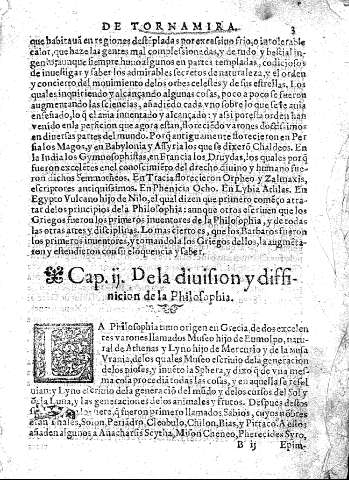 DE TORNAMIRA. 3
que habitauā en regiones destēpladas por excessiuo frio, o intolerable
calor, que haze las gentes mal complessionadas, y de rudo y bestial in-
genio: aunque siempre huuo algunos en partes templadas, codiciosos
de inuestigar y saber los admirables secretos de naturaleza, y el orden
y concierto del mouimiento de los orbes celestes y de sus estrellas. Los
quales inquiriendo y alcançando algunas cosas, poco a poco se fueron
augmentando las sciencias, añadiēdo cada vno sobre lo que se le auia
enseñado, lo q̄ el auia inuentado y alcançado: y assi por esta orden han
venido en la perficion que agora estan, floreciēdo varones doctissimos
en diuersas partes del mundo. Porq̄ antiguamente florecieron en Per
sia los Magos, y en Babylonia y Assyria los que se dixerō Chaldeos. En
la India los Gymnosophistas, en Francia los Druydas, los quales porq̄
fueron excelētes en el conoscimiēto del derecho diuino y humano fue-
ron dichos Semnotheos. En Tracia florecieron Orpheo y Zalmaxis,
escriptores antiquissimos. En Phenicia Ocho. En Lybia Athlas. En
Egypto Vulcano hijo de Nilo, el qual dizen que primero comēço a tra-
tar de los principios de la Philosophia: aunque otros escriuen que los
Griegos fueron los primeros inuentores de la Philosophia, y de todas
las otras artes y disciplinas. Lo mas cierto es, que los Barbaros fueron
los primeros inuentores, y tomandola los Griegos dellos, la augmēta-
ron y estendieron con su eloquencia y saber.
Cap. ij. De la diuision y diffi-
nicion de la Philosophia.
LA Philosophia tuuo origen en Grecia, de dos excelen
tes varones llamados Museo hijo de Eumolpo, natu-
ral de Athenas y Lyno hijo de Mercurio y de la Musa
Vrania, de los quales Museo escriuio de la generacion
de los dioses, y inuēto la Sphera, y dixo q̄ de vna mes-
ma cosa procediā todas las cosas, y en aquella se resol
uian: y Lyno escriuio de la generaciō del mūdo y de los cursos del Sol y
de la Luna, y las generaciones de los animales y frutos. Despues destos
q̄ fueron primero llamados Sabios, cuyos nōbres
eran Thales, Solon, Periādro, Cleobulo, Chilon, Bias, y Pittaco. A estos
añaden algunos a Anacharsis Scytha, Mison Cheneo, Pherecides Syro,
B ij Epim-